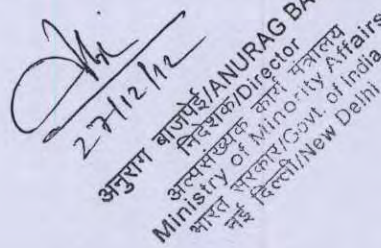 27/12/12
अनुराग बाजपेई/ANURAG BA
निदेशक/Director
अल्पसंख्यक कार्य मंत्रालय
Ministry of Minority Affairs
भारत सरकार/Govt. of India
नई दिल्ली/New Delhi